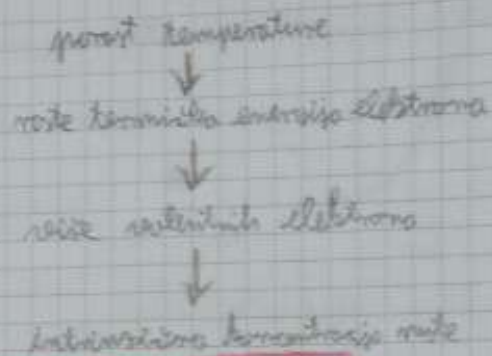 porast temperature
↓
raste termička energija elektrona
↓
više valentnih elektrona
↓
intrinzična koncentracija raste